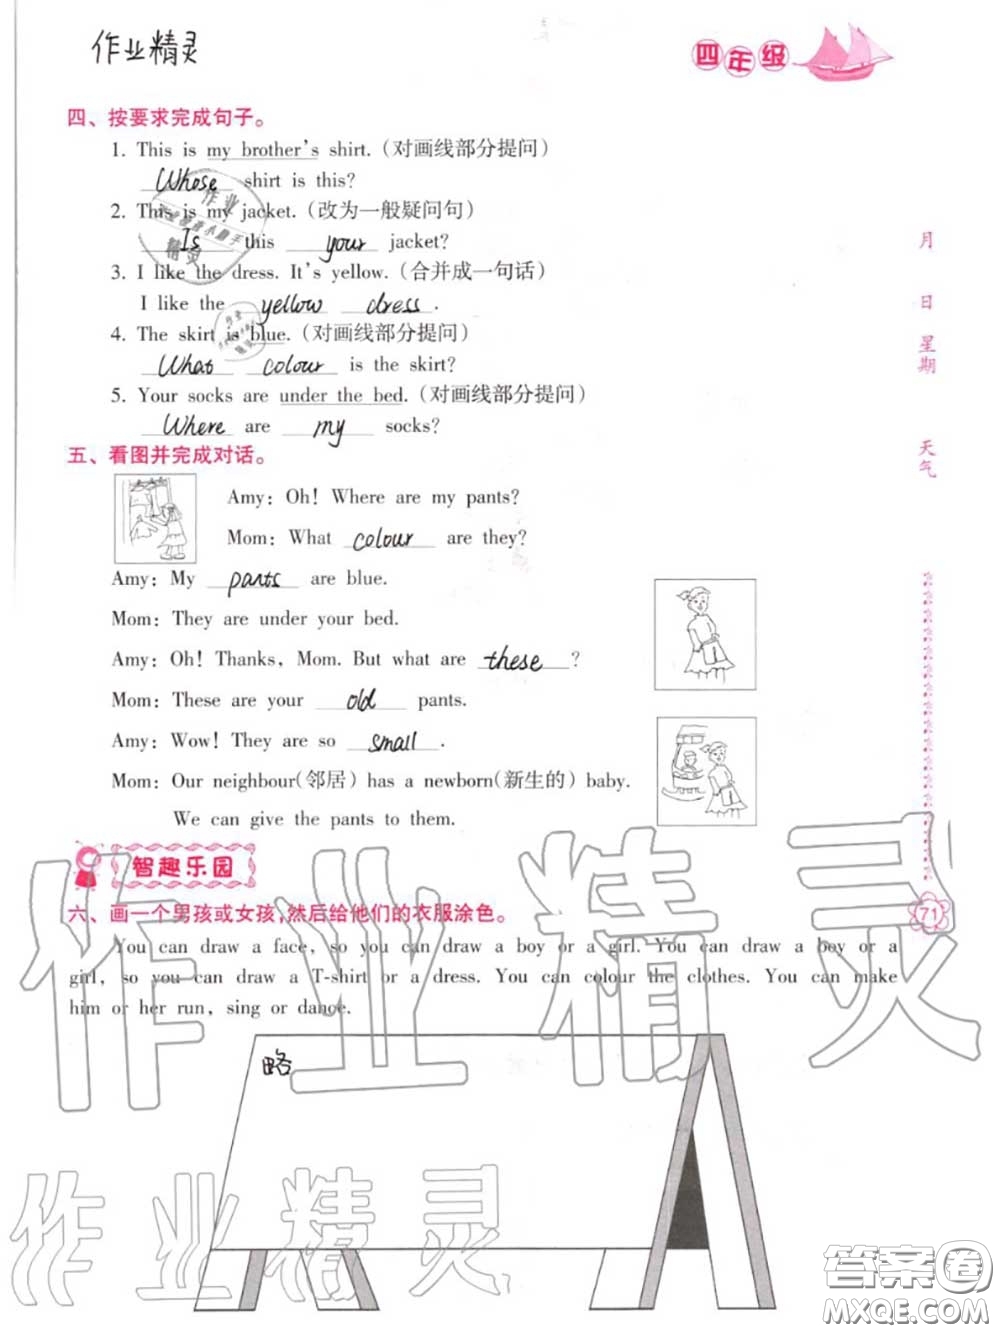 作业精灵
四年级
四、按要求完成句子。
1. This is my brother's shirt.(对画线部分提问)
Whose shirt is this?
2. This is my jacket.(改为一般疑问句)
Is this your jacket?
3. I like the dress. It's yellow.(合并成一句话)
I like the yellow dress.
4. The skirt is blue.(对画线部分提问)
What colour is the skirt?
5. Your socks are under the bed.(对画线部分提问)
Where are my socks?
五、看图并完成对话。
Amy: Oh! Where are my pants?
Mom: What colour are they?
Amy: My pants are blue.
Mom: They are under your bed.
Amy: Oh! Thanks, Mom. But what are these?
Mom: These are your old pants.
Amy: Wow! They are so small.
Mom: Our neighbour(邻居) has a newborn(新生的) baby.
We can give the pants to them.
智趣乐园
六、画一个男孩或女孩,然后给他们的衣服涂色。
You can draw a face, so you can draw a boy or a girl. You can draw a boy or a
girl, so you can draw a T-shirt or a dress. You can colour the clothes. You can make
him or her run, sing or dance.
略
月
日
星期
天气
71
作业精灵
作业精灵
答案圈
MXQE.COM